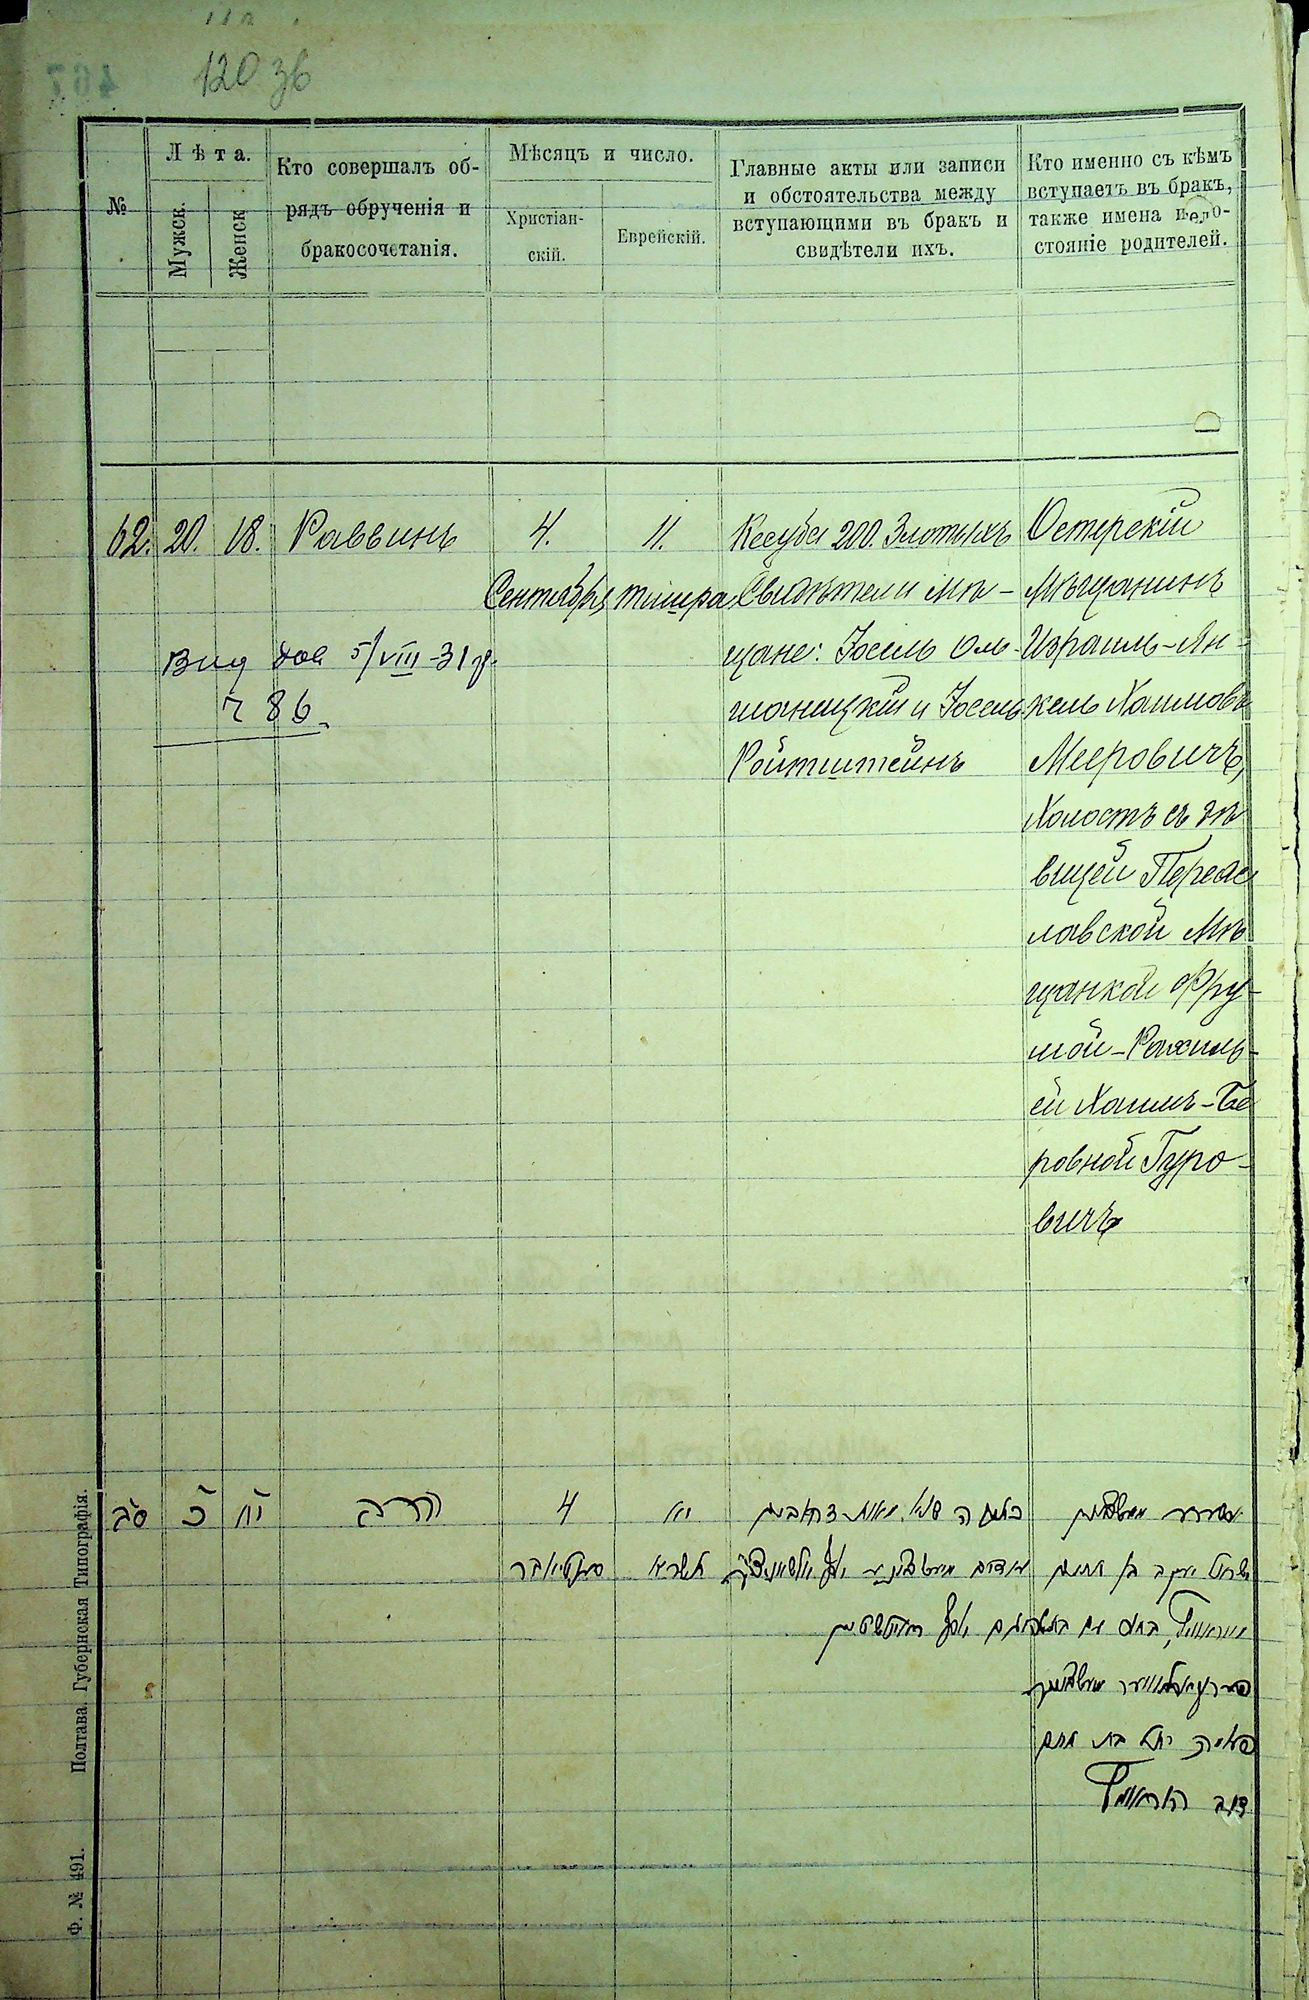 120 зв
467
№
Лѣта.
Мужск.
Женск
Кто совершалъ об-
рядъ обрученія и
бракосочетанія.
Мѣсяцъ и число.
Христіан-
скій.
Еврейскій.
Главные акты или записи
и обстоятельства между
вступающими въ бракъ и
свидѣтели ихъ.
Кто именно съ кѣмъ
вступаетъ въ бракъ,
также имена и со-
стояніе родителей.
62.
20.
18.
Раввинъ
4.
Сентября
11.
тишра
Кесуба 200. Злотыхъ
Свидѣтели Мѣ-
щане: Іосель Оль-
шаницкій и Іосель
Ройтштейнъ
Остерскій
Мѣщанинъ
Израиль-Ян-
кель Хаимовъ
Мееровичъ,
Холостъ съ дѣ
вицей Переяс
лавской Мѣ
щанкой Фру-
мой-Рахиль-
ей Хаимъ-Бе
ровной Гуро-
вичъ
Вид дов 5/VIII-31 р.
ч 86
סב
כ
יח
הרב
4
סענטיאבר
יא
תשרי
ישראל יעקב בן חיים
רחל בת חיים
דוב
Ф. № 491. Полтава. Губернская Типографія.